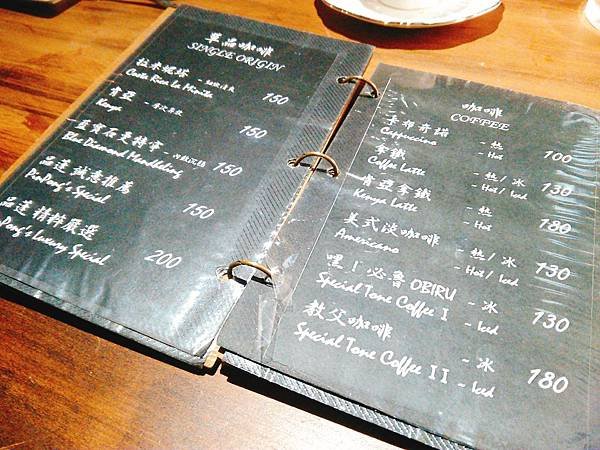 單品咖啡
SINGLE ORIGIN
拉米妮塔 150
Costa Rica La Minita
肯亞 150
Kenya
藍寶石曼特寧 150
Blue Diamond Mandheling
品蓬誠意推薦 150
PinPong's Special
品蓬精粹嚴選 200
Pong's Luxury Special
咖啡
COFFEE
卡布奇諾 - 熱 100
Cappuccino - Hot
拿鐵 - 熱 / 冰 130
Coffee Latte - Hot / Iced
肯亞拿鐵 - 熱 180
Kenya Latte - Hot
美式淡咖啡 - 熱 / 冰 130
Americano - Hot / Iced
嘿！必魯 OBIRU - 冰 130
Special Tone Coffee I - Iced
教父咖啡 - 冰 180
Special Tone Coffee II - Iced